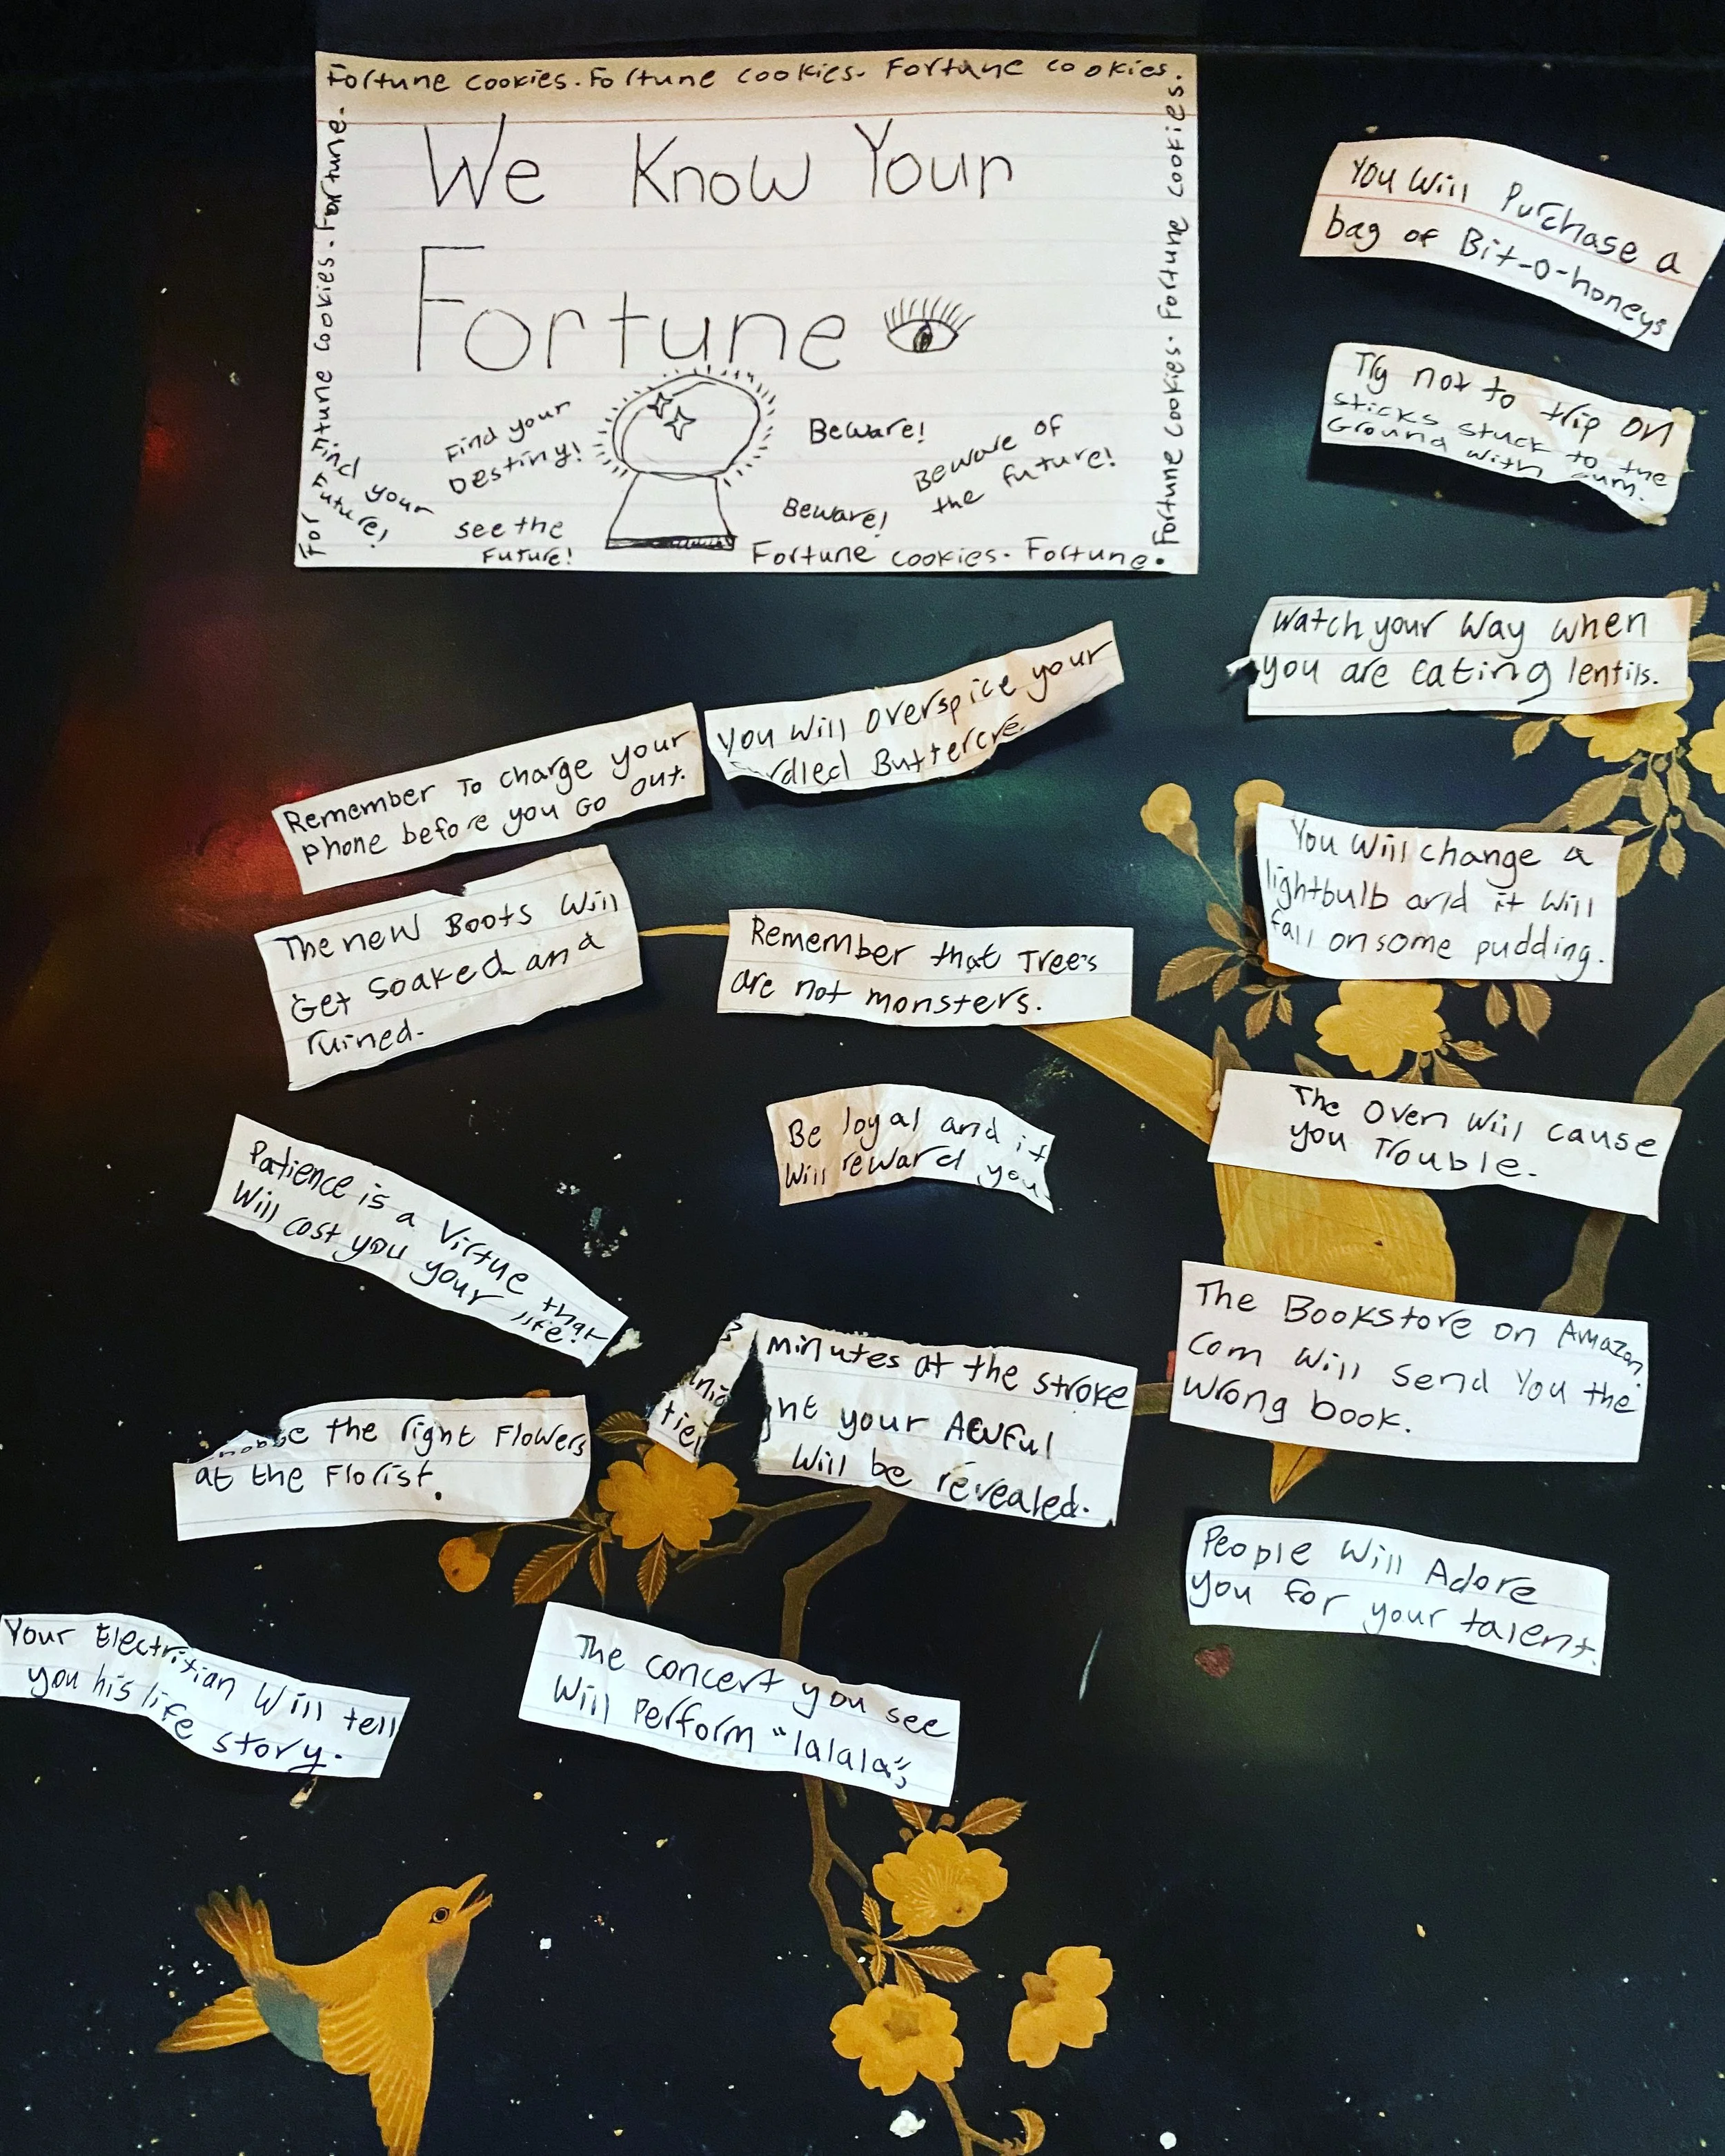 Fortune cookies. Fortune cookies. Fortune cookies.
Fortune cookies. Fortune.
Fortune cookies. Fortune cookies. Fortune cookies.
We Know Your
Fortune
Find your
Destiny!
Find your
Future!
see the
Future!
Beware!
Beware of
the future!
Beware!
For
Fortune cookies. Fortune.
You Will Purchase a
bag of Bit-o-honeys
Try not to trip on
sticks stuck to the
Ground with Gum.
Watch your Way when
you are eating lentils.
You Will Overspice your
Buttercre
Remember To charge your
phone before you Go out.
You Will change a
lightbulb and it Will
fall on some pudding.
The new Boots Will
Get Soaked and
ruined.
Remember that Trees
are not monsters.
The Oven Will cause
you Trouble.
Be loyal and it
Will reward you.
Patience is a Virtue that
Will cost you your life!
The Bookstore on Amazon.
Com Will Send You the
Wrong book.
3 minutes at the stroke
your Awful
Will be revealed.
the right Flowers
at the Florist.
People Will Adore
you for your talent.
Your Electritian Will tell
you his life story.
The concert you see
Will Perform "lalala",